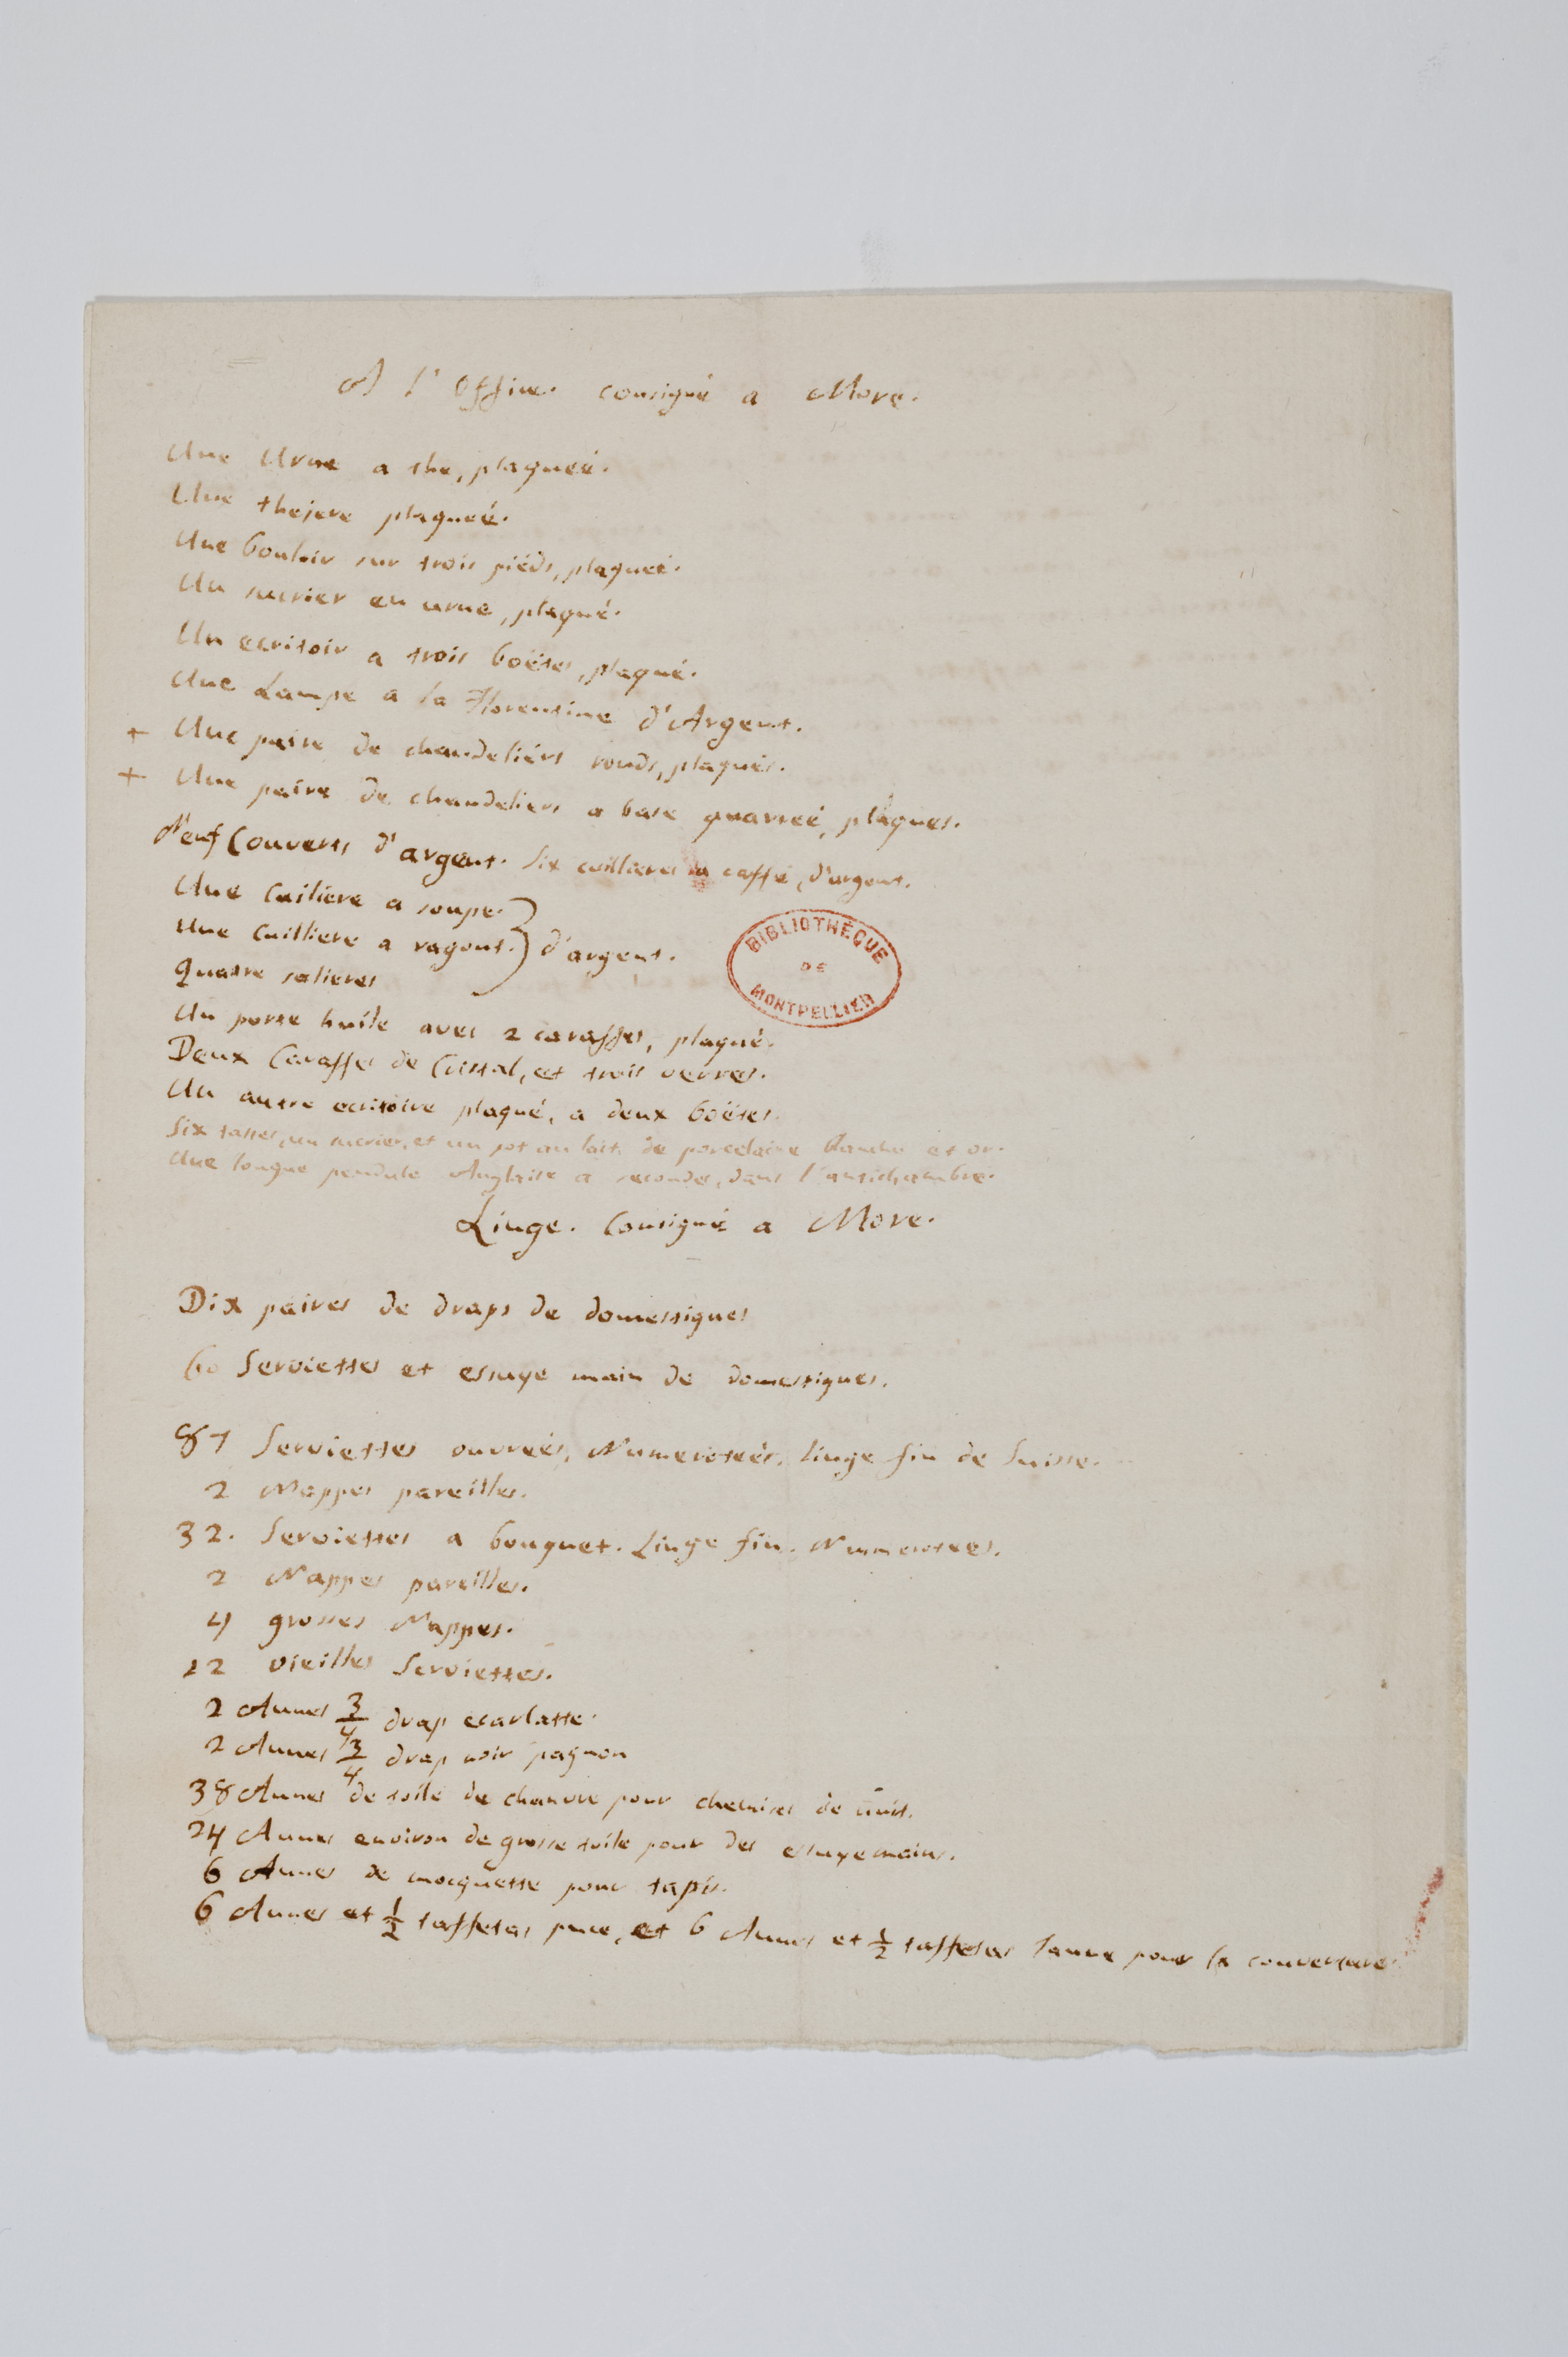 A l'Office. consigné a More.
Une Urne a the, plaqueé.
Une thejere plaqueé.
Une bouloir sur trois piéds, plaqueé.
Un sucrier en urne, plaqué.
Un ecritoir a trois boëtes, plaqué.
Une Lampe a la Florentine d'Argent.
+ Une paire de chandeliérs ronds, plaqués.
+ Une paire de chandeliers a base quarreé, plaques.
Neuf Couverts d'argent. Six cuillieres a caffé, d'argent.
Une Cuiliere a soupe.
Une Cuilliere a ragout. } d'argent.
Quatre salieres
Un porte huile avec 2 caraffes, plaqué.
Deux Caraffes de Cristal, et trois verres.
Un autre ecritoire plaqué, a deux boëtes.
Six tasses, un sucrier, et un pot au lait, de porcelaine blanche et or.
Une longue pendule Anglaise a secondes, dans l'antichambre.
BIBLIOTHÈQUE
DE
MONTPELLIER
Linge. Consigné a More.
Dix paires de draps de domestiques
60 Serviettes et essuye main de domestiques.
87 Serviettes ouvreés, Numeroteés. linge fin de Suisse.
2 Nappes pareilles.
32. Serviettes a bouquet. Linge fin. Numerotees.
2 Nappes pareilles.
4 grosses Nappes.
12 vieilles Serviettes.
2 Aunes 3/4 drap ecarlatte.
2 Aunes 3/4 drap noir pagnon
38 Aunes de toile de chanvre pour chemises de nuit.
24 Aunes environ de grosse toile pour des essuyemains.
6 Aunes de mocquette pour tapis.
6 Aunes et 1/2 taffetas puce, et 6 Aunes et 1/2 taffetas pour la couverture